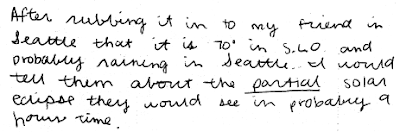 After rubbing it in to my friend in
Seattle that it is 70° in S.L.O. and
probably raining in Seattle. I would
tell them about the partial solar
eclipse they would see in probably a
hours time.